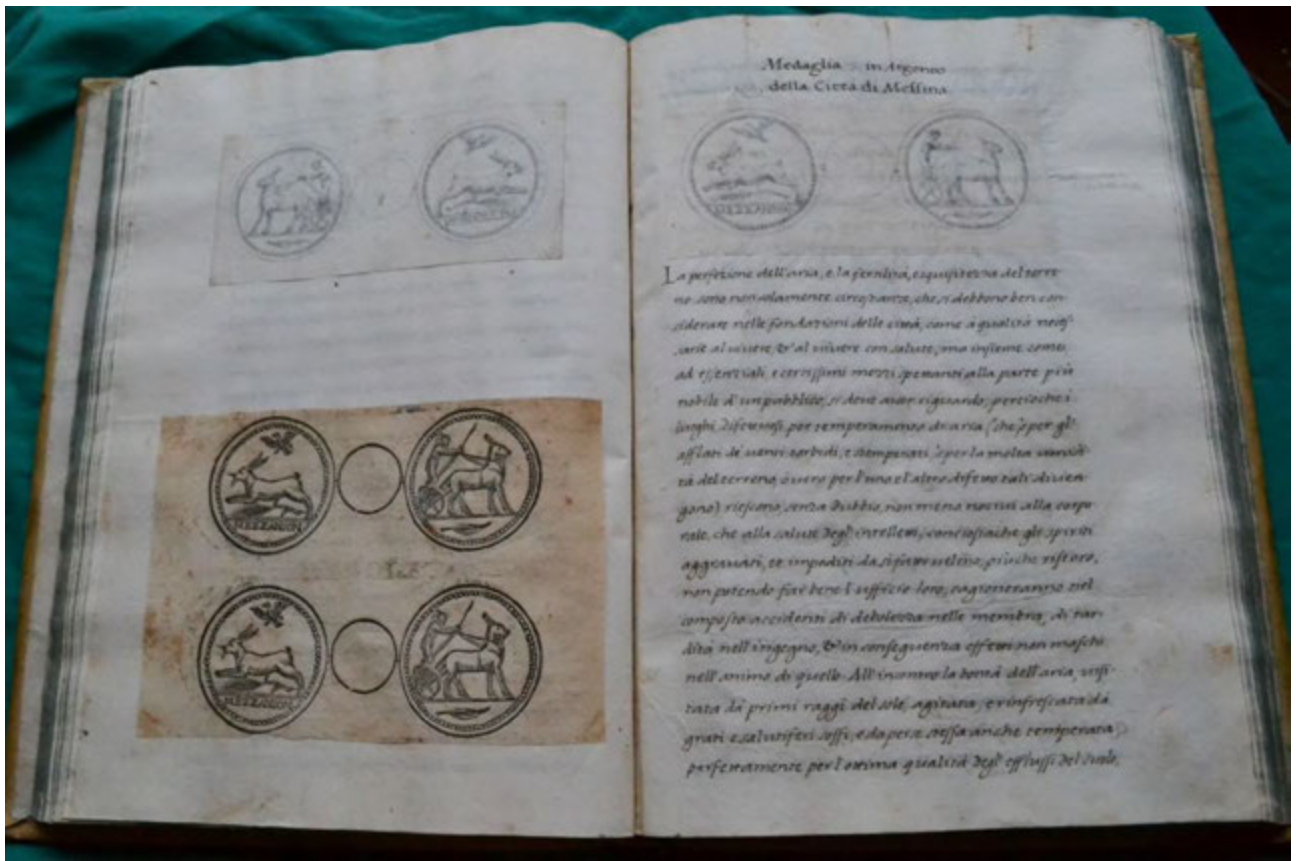 MEΣΣANION
MEΣΣANION
Medaglia in Argento
della Città di Messina.
La perfezione dell'aria, e la fertilità, esquisitezza del terre-
no sono non solamente circostanze, che si debbono ben con-
siderare nelle fondazioni delle città, come à qualità neces-
sarie al vivere, & al vivere con salute, ma insieme come
ad essenziali, e certissimi mezzi spettanti alla parte più
nobile d'un pubblico, si deve aver riguardo, percioche i
luoghi difettosi per temperamento di aria (che ò per gl'
afflati de' venti torbidi, e stemperati, ò per la molta umidi-
tà del terreno, ò vero per l'uno e l'altro difetto tali diven-
gono) riescono, senza dubbio, non meno nocivi alla corpo-
rale, che alla salute degl'intelletti, conciosiache gli spiriti
aggravati, et impediti da sifatto veleno, più che ristoro,
non potendo far bene l'ufficio loro, cagioneranno nel
composto accidenti di debolezza nelle membra, di tar-
dità nell'ingegno, & in conseguenza effetti non maschi
nell'animo di quello. All'incontro la bontà dell'aria, visi-
tata dà primi raggi del sole, agitata, e rinfrescata dà
grati e salutiferi soffi, e da per se stessa anche temperata
perfettamente per l'ottima qualità degl'efflussi del suolo,